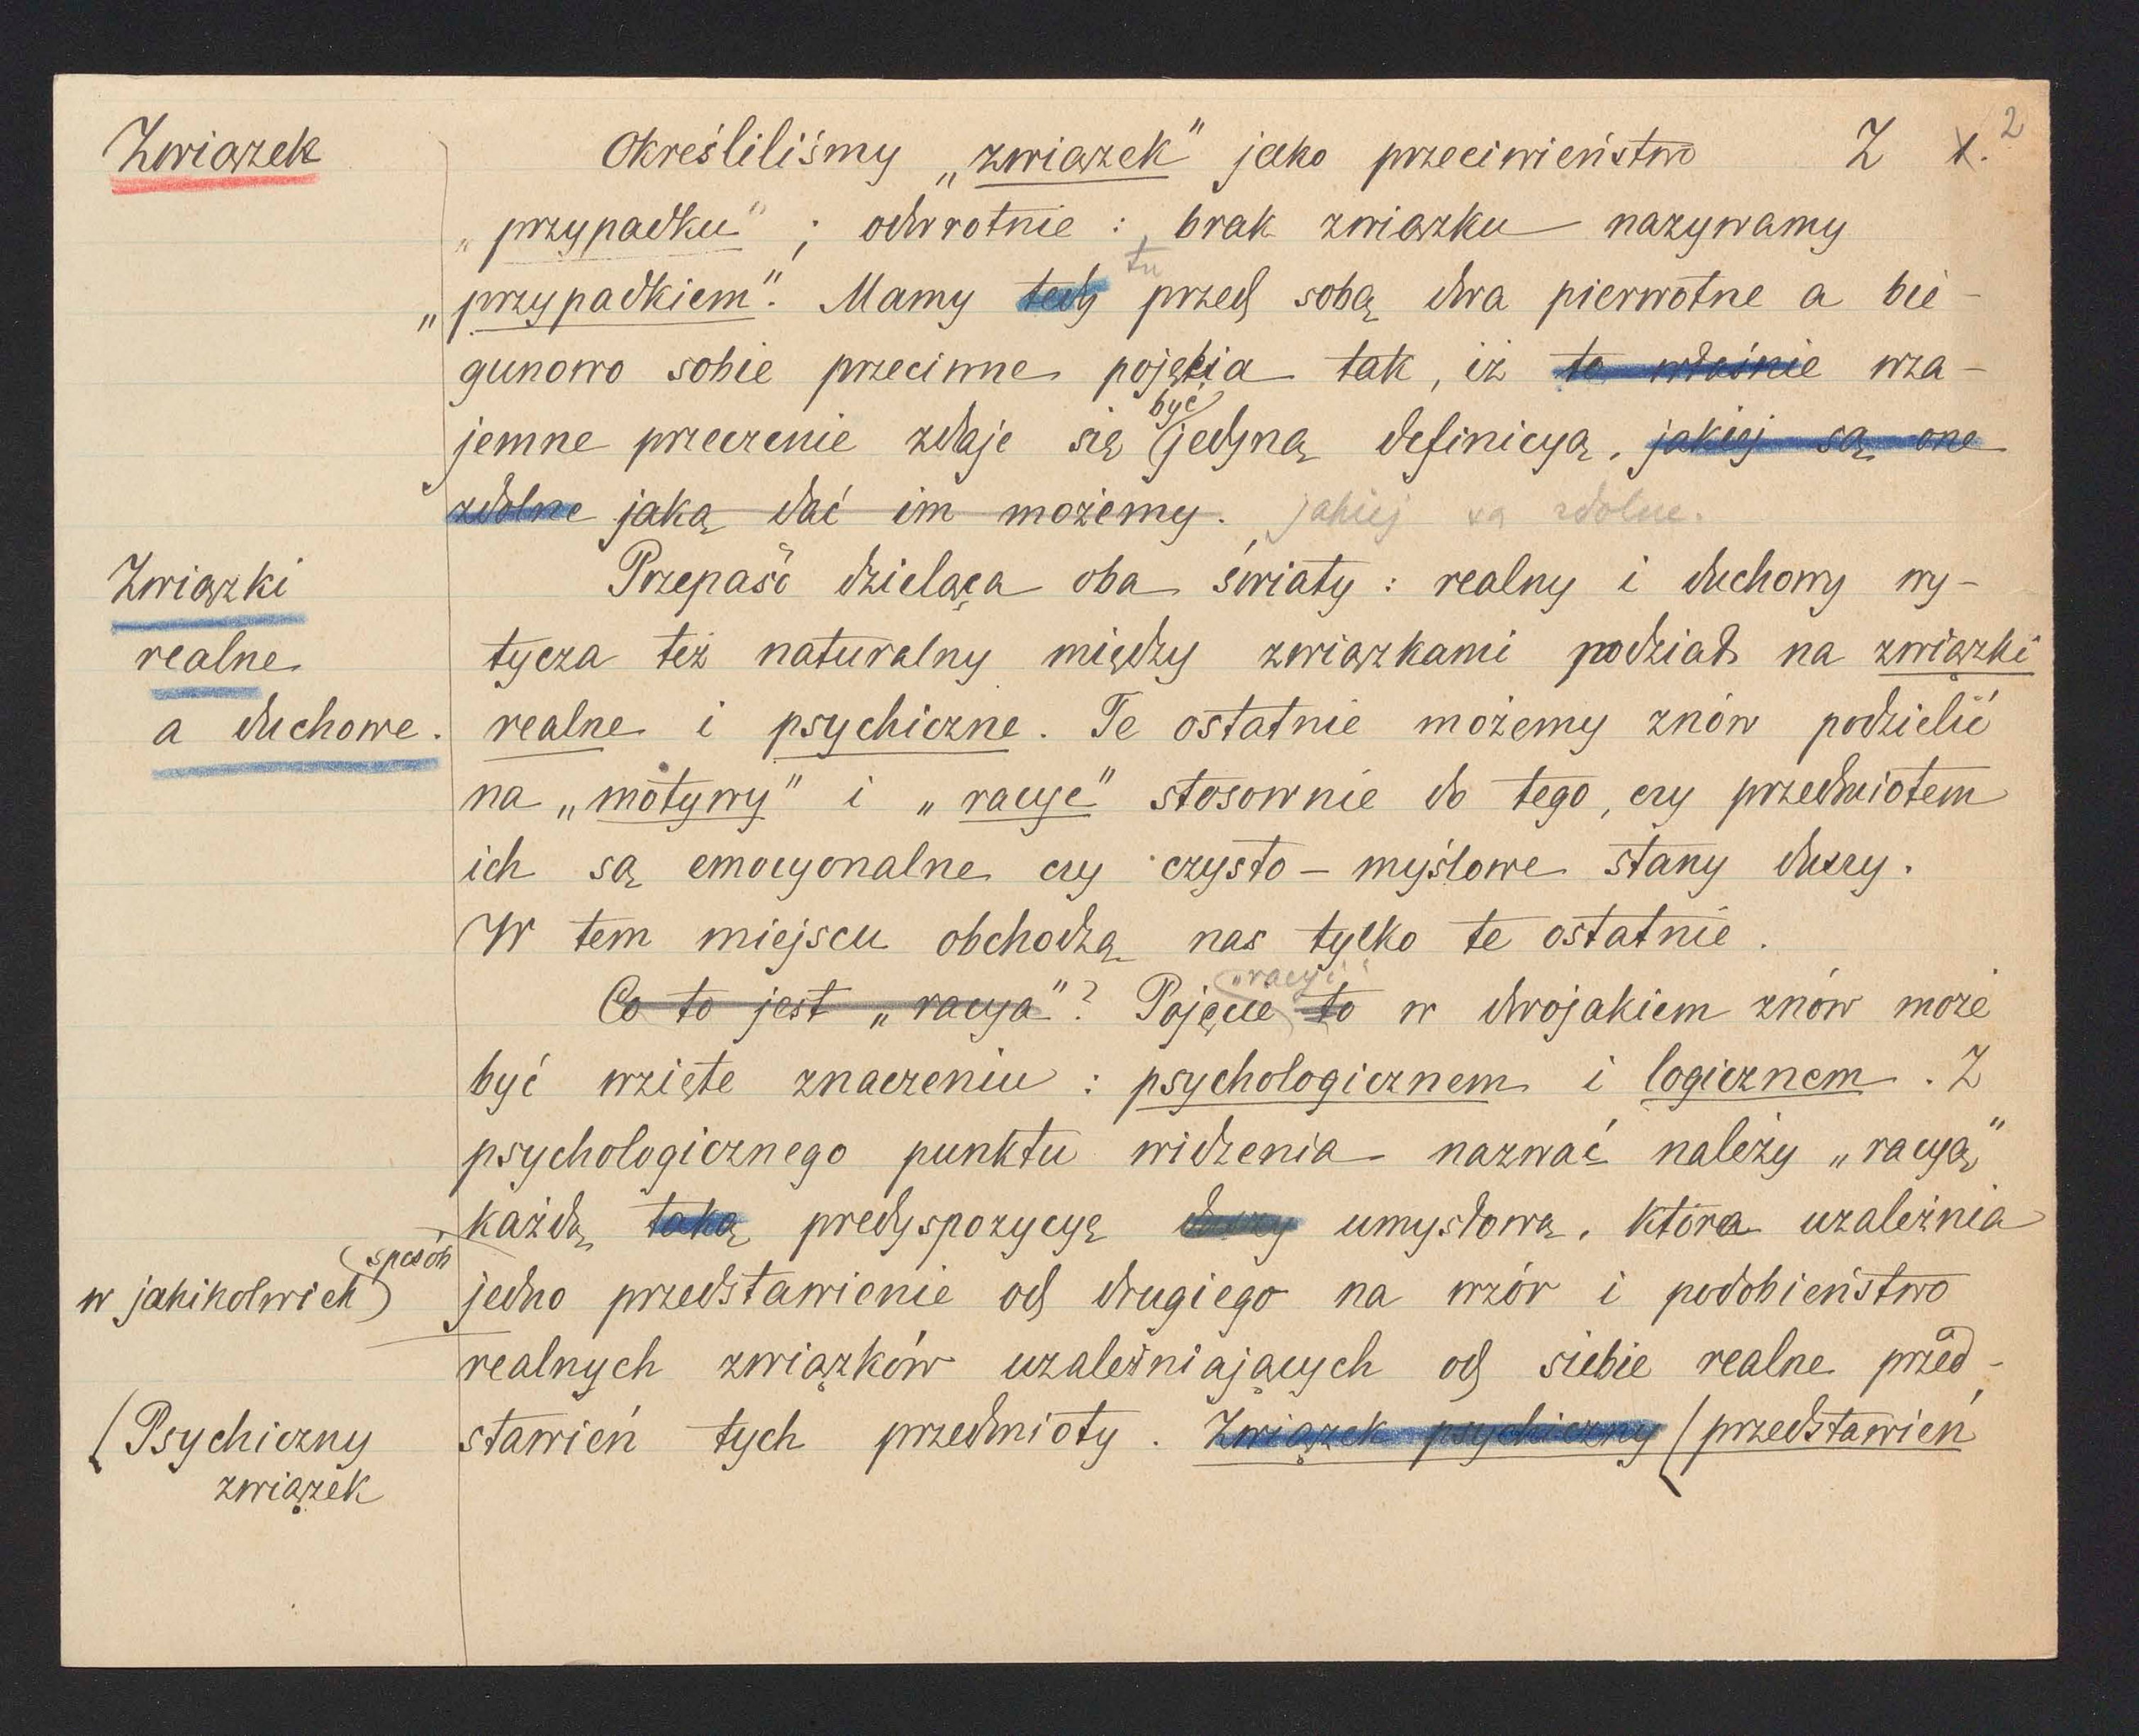 Związek
Określiliśmy „związek" jako przeciwieństwo Z 1. 2
„przypadku" ; odwrotnie : brak związku nazywamy
tu
„przypadkiem". Mamy tedy przed sobą dwa pierwotne a bie-
gunowo sobie przeciwne pojęcia tak, iż to właśnie wza-
być
jemne przeczenie zdaje się jedyną definicyą, jakiej są one
zdolne jaką dać im możemy. jakiej są zdolne.
Związki
realne
a duchowe.
Przepaść dzieląca oba światy : realny i duchowy wy-
tycza też naturalny między związkami podział na związki
realne i psychiczne. Te ostatnie możemy znów podzielić
na „motywy" i „racye" stosownie do tego, czy przedmiotem
ich są emocyonalne czy czysto-myślowe stany duszy.
W tem miejscu obchodzą nas tylko te ostatnie.
„racyi"
Co to jest „racya"? Pojęcie to w dwojakiem znów może
być wzięte znaczeniu : psychologicznem i logicznem. Z
psychologicznego punktu widzenia nazwać należy „racyą"
każdą taką predyspozycyę duszy umysłową, która uzależnia
sposób
w jakikolwiek
jedno przedstawienie od drugiego na wzór i podobieństwo
realnych związków uzależniających od siebie realne przed-
stawień tych przedmioty. Związek psychiczny (przedstawień
(Psychiczny
związek